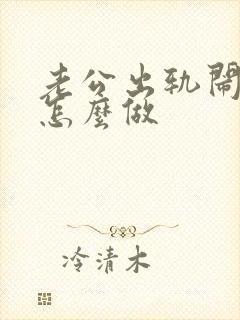 老公出轨鬧
怎麼做
冷清木